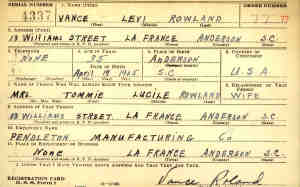 SERIAL NUMBER 1. NAME (Print) ORDER NUMBER
4337 VANCE LEVI ROWLAND
2. ADDRESS (Print)
13 WILLIAMS STREET LA FRANCE ANDERSON S.C.
3. TELEPHONE 4. AGE IN YEARS 5. PLACE OF BIRTH 6. COUNTRY OF CITIZENSHIP
NONE 35 ANDERSON
DATE OF BIRTH
April S.C. U.S.A
7. NAME OF PERSON WHO WILL ALWAYS KNOW YOUR ADDRESS 8. RELATIONSHIP OF THAT PERSON
MRS. TOMMIE LUCILE ROWLAND WIFE
9. ADDRESS OF THAT PERSON
13 WILLIAMS STREET LA FRANCE ANDERSON S.C.
10. EMPLOYER'S NAME
PENDLETON MANUFACTURING Co
11. PLACE OF EMPLOYMENT OR BUSINESS
NONE LA FRANCE ANDERSON S.C.
I AFFIRM THAT I HAVE VERIFIED ABOVE ANSWERS AND THAT THEY ARE TRUE.
REGISTRATION CARD
D.S.S. Form 1
Vance Roland